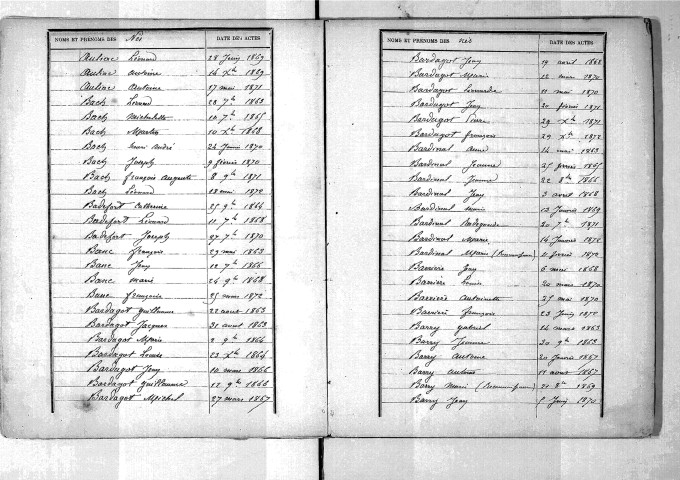 NOMS ET PRENOMS DES Nés DATE DES ACTES
Auliac Léonard 28 Juin 1869
Auliac Antoine 14 Xbre 1869
Auliac Antoine 17 mai 1871
Bach Léonard 28 7bre 1863
Bach 10 7bre 1865
Bach Martin 10 Xbre 1868
Bach André 24 Juin 1870
Bach Joseph 9 février 1870
Bach françois Auguste 8 9bre 1871
Bach Léonard 18 mai 1872
Badefort Catherine 25 9bre 1864
Badefort Léonard 11 7bre 1868
Badefort Joseph 27 7bre 1870
Banc françois 29 mai 1863
Banc Jean 12 7bre 1866
Banc marie 24 9bre 1868
Banc françoise 25 mars 1872
Bardagot guillaume 22 aout 1863
Bardagot Jacques 31 aout 1863
Bardagot Marie 2 9bre 1864
Bardagot Louise 23 Xbre 1864
Bardagot Jean 10 mars 1866
Bardagot guillaume 12 9bre 1866
Bardagot Michel 27 mars 1867
NOMS ET PRENOMS DES nés DATE DES ACTES
Bardagot Jean 19 avril 1868
Bardagot Marie 12 mars 1870
Bardagot Léonarde 11 mai 1870
Bardagot Jean 20 février 1871
Bardagot Pierre 29 Xbre 1871
Bardagot françois 29 Xbre 1872
Bardinal Anne 14 mai 1863
Bardinal Jeanne 27 février 1865
Bardinal Jeanne 22 8bre 1866
Bardinal Jean 3 avril 1868
Bardinal Marie 12 Janvier 1869
Bardinal Radegonde 20 7bre 1871
Bardinal Marie 14 Janvier 1872
Bardinal Marie (Reconnaissance) 11 février 1872
Barrière Jean 6 mars 1868
Barrière Louis 20 mars 1870
Barrière Antoinette 27 mai 1870
Barrière françois 23 Juin 1872
Barry gabriel 14 mars 1863
Barry Jeanne 30 9bre 1863
Barry Antoine 20 Janvier 1867
Barry 11 aout 1867
Barry Marie (Reconnaissance) 21 8bre 1869
Barry Jean Juin 1870